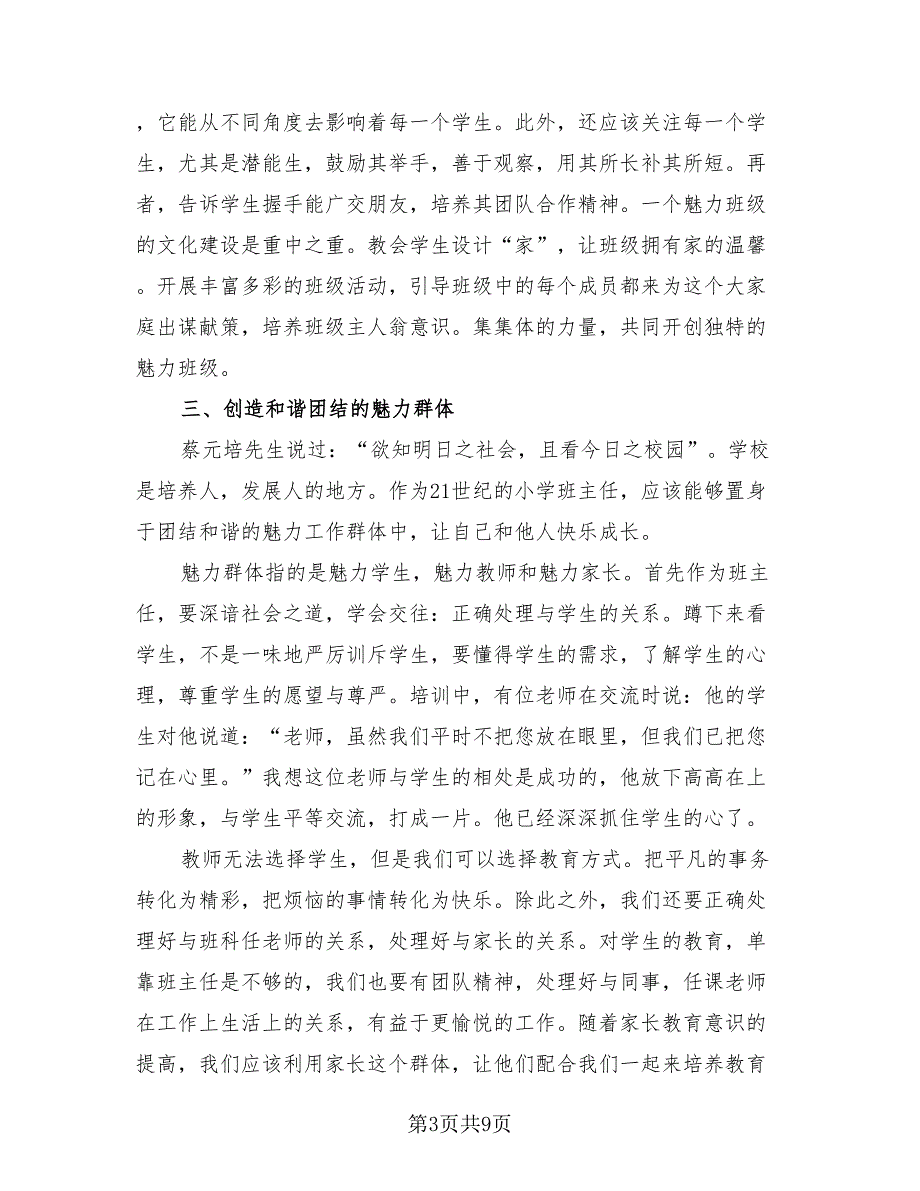 ，它能从不同角度去影响着每一个学生。此外，还应该关注每一个学
生，尤其是潜能生，鼓励其举手，善于观察，用其所长补其所短。再
者，告诉学生握手能广交朋友，培养其团队合作精神。一个魅力班级
的文化建设是重中之重。教会学生设计“家”，让班级拥有家的温馨
。开展丰富多彩的班级活动，引导班级中的每个成员都来为这个大家
庭出谋献策，培养班级主人翁意识。集集体的力量，共同开创独特的
魅力班级。
三、创造和谐团结的魅力群体
蔡元培先生说过：“欲知明日之社会，且看今日之校园”。学校
是培养人，发展人的地方。作为21世纪的小学班主任，应该能够置身
于团结和谐的魅力工作群体中，让自己和他人快乐成长。
魅力群体指的是魅力学生，魅力教师和魅力家长。首先作为班主
任，要深谙社会之道，学会交往：正确处理与学生的关系。蹲下来看
学生，不是一味地严厉训斥学生，要懂得学生的需求，了解学生的心
理，尊重学生的愿望与尊严。培训中，有位老师在交流时说：他的学
生对他说道：“老师，虽然我们平时不把您放在眼里，但我们已把您
记在心里。”我想这位老师与学生的相处是成功的，他放下高高在上
的形象，与学生平等交流，打成一片。他已经深深抓住学生的心了。
教师无法选择学生，但是我们可以选择教育方式。把平凡的事务
转化为精彩，把烦恼的事情转化为快乐。除此之外，我们还要正确处
理好与班科任老师的关系，处理好与家长的关系。对学生的教育，单
靠班主任是不够的，我们也要有团队精神，处理好与同事，任课老师
在工作上生活上的关系，有益于更愉悦的工作。随着家长教育意识的
提高，我们应该利用家长这个群体，让他们配合我们一起来培养教育
第3页共9页